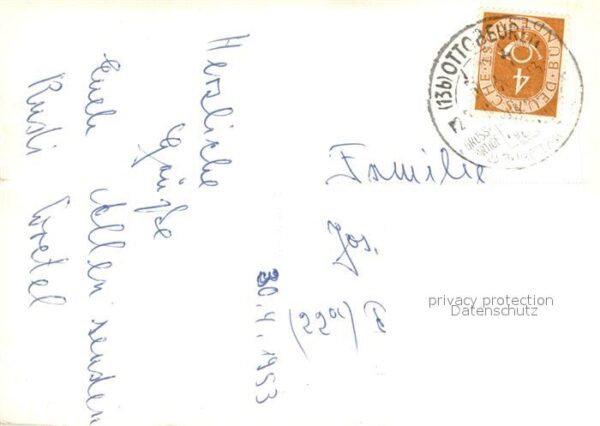 Herzliche
Grüße
Euch Allen senden
Rudi Gretel
30.4.1953
Familie
Jos.
(22a)
privacy protection
Datenschutz
(13b) OTTOBEUREN
DEUTSCHE BUNDESPOST
4